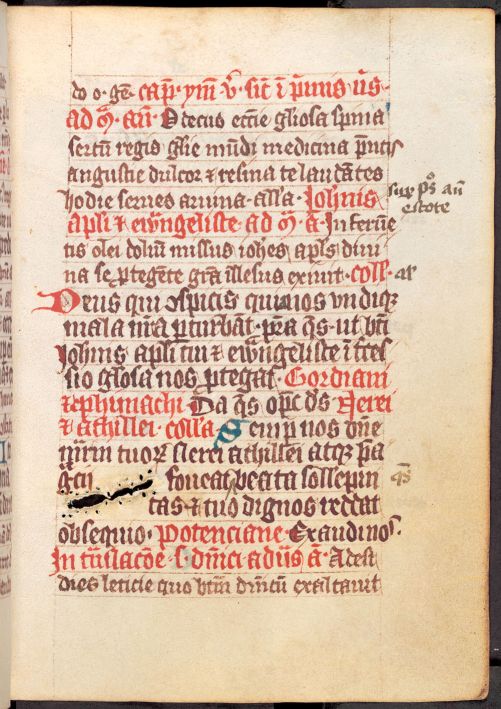 do o. gē. cap̄. ym̄ v̄. sic̄ ī p̄mis v̄s.
ad m̄. añ. O decus ecc̄ie gl̄iosa spinā
sertū regis gl̄ie mūdi medicina p̄ncis
angustie dulcor & resina te laudātes
hodie serues a ruina. all̄a. Joh̄nis
apl̄i & ew̄ngeliste ad m̄ a. In feruē
tis olei doliū missus ioh̄es apl̄s diui
na se p̄tegēte grā illesus exiuit. coll̄. al̄
Deus qui ɔspicis qui nos vndiq̄
mala nr̄a p̄turbāt. p̄ta q̄s. ut bt̄i
Joh̄nis apl̄i tui & ew̄ngeliste ītres
sio gl̄osa nos p̄tegat. Gordiani
& ephimachi. Da q̄s op̄c d̄s Nerei
& achillei. coll̄a. Semp nos dn̄e
mr̄m tuoꝝ Nerei achillei atq̄ pā
gcii foueat beata sollepni
tas & tuo dignos reddat
obsequio. Potenciane. Exaudi nos.
In trāslacōe s. dn̄ici ad vīs ā. Adest
dies leticie quo btm̄ dn̄icū exaltauit
sup p̄s añ
estote
q̄s